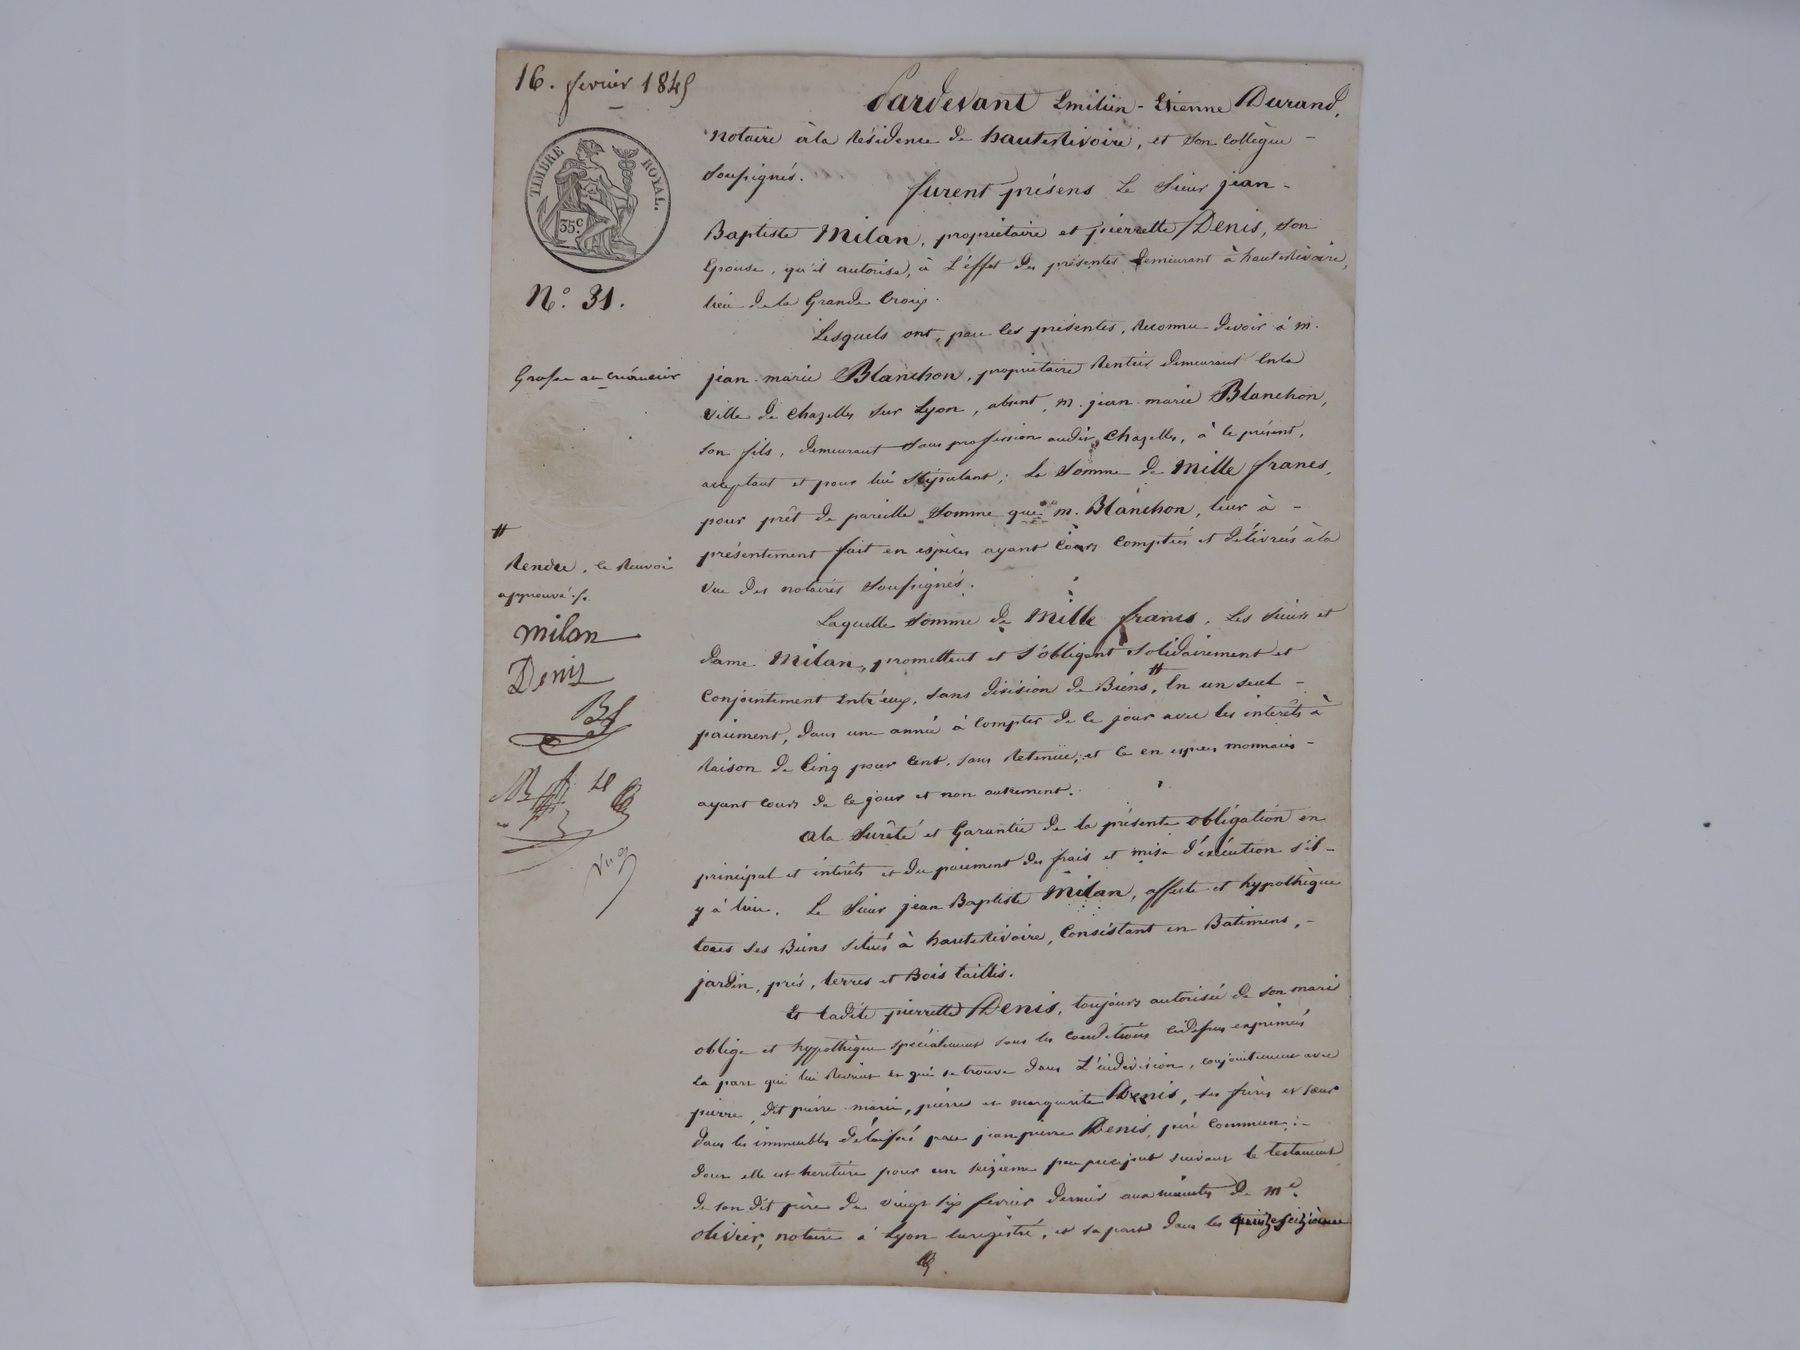 16. fevrier 1845
Pardevant Emilien-Etienne Durand,
notaire à la Résidence de hauterivoire, et son Collègue -
soussignés.
furent présens Le Sieur jean -
Baptiste Milan, propriétaire et pierrette Denis, son
Epouse, qu'il autorise, à L'effet des présentes demeurant à hauterivoire,
lieu de la Grande Croix.
TIMBRE ROYAL.
35c
No. 31.
Lesquels ont, par les présentes, reconnu devoir à m.
Grosse au créancier
jean-marie Blanchon, propriétaire Rentier demeurant En la
ville de Chazelles sur Lyon, absent, m. jean marie Blanchon,
son fils, demeurant sans profession audit Chazelles, à ce présent,
acceptant et pour lui stipulant; La somme de Mille francs,
pour prêt de pareille somme que m. Blanchon, leur à -
présentement fait en espèces ayant cours comptées et délivrées à la
vue des notaires soussignés.
#
Rendre, le Renvoi
approuvé
milan
Denis
Laquelle somme de Mille francs, Les Sieur et
dame Milan, promettent et s'obligent solidairement et
Conjointement Entr'eux, sans division de Biens #, En un seul -
paiement, dans une année à compter de ce jour avec les intérêts à
Raison de Cinq pour Cent, sans Retenue, et ce en espèces monnaies -
ayant cours de ce jour et non autrement.
A la Sureté et Garantie de la présente obligation en
principal et intérêts et du paiement des frais et mise d'exécution s'il -
y à lieu. Le Sieur jean Baptiste Milan, affecte et hypothèque
tous ses Biens situés à hauterivoire, Consistant en Batimens, -
jardin, prés, terres et Bois taillis.
Et Ladite pierrette Denis, toujours autorisée de son mari
oblige et hypothèque spécialement sous les conditions cidessus exprimées
la part qui lui revient et qui se trouve dans L'indivision, conjointement avec
pierre, dit pierre-marie, pierre et marguerite Denis, ses frères et sœur
dans les immeubles délaissés par jean pierre Denis, père commun; -
dont elle est heritière pour un seizième par preciput suivant le testament
de son dit père du vingt six fevrier dernier aux minutes de me.
olivier, notaire à Lyon enregistré, et sa part dans les quinze seizième